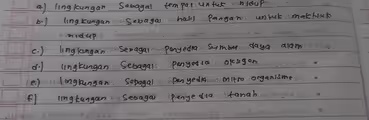 a) lingkungan Sebagai tempat untuk hidup
b) lingkungan Sebagai hasil Pangan untuk makhluk
hidup
c.) lingkungan Sebagai Penyedia Sumber daya alam
d.) lingkungan Sebagai Penyedia oksigen
e.) lingkungan Sebagai Penyedia mikro organisme
f) lingkungan Sebagai Penyedia tanah